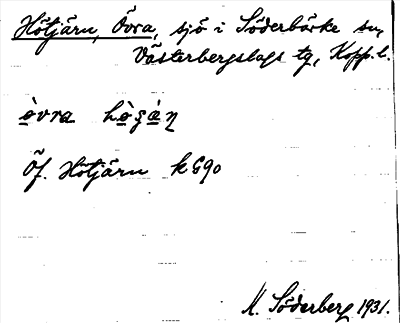 Hötjärn, Övra, sjö i Söderbärke sn,
Västerbergslags tg, Kopp. l.
òvra hò̱ʂæ̀ŋ
Öf. Hötjärn k G90
M. Söderberg 1931.